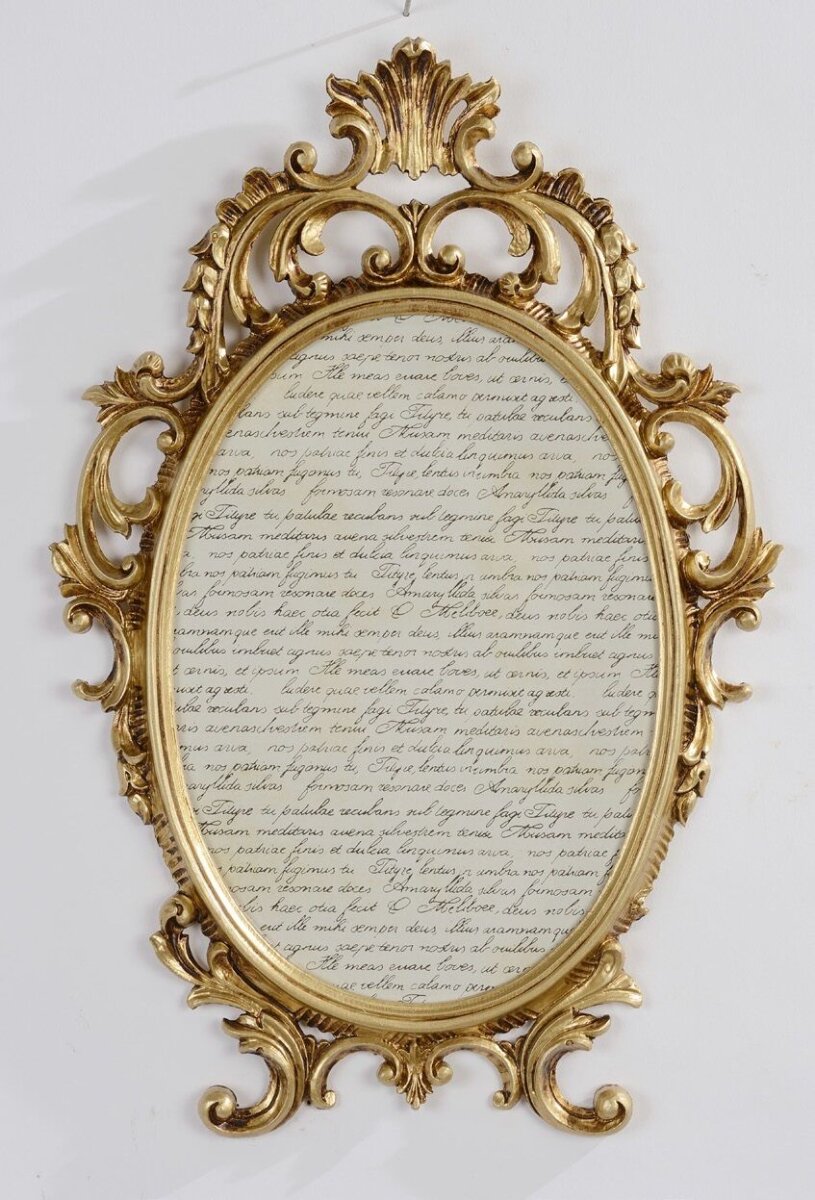 mihi semper deus, illius aram
agnus saepe tenor nostris ab ouilibus
ipsum Ille meas errare boves, ut cernis, e
ludere quae vellem calamo permisit agresti.
lans sub tegmine fagi Tityre, tu patulae recubans
avenasilvestrem tenui Musam meditaris avenasilve
arva, nos patriae finis et dulcia linquimus arva, nos
nos patriam fugimus tu, Tityre, lentus in umbra nos patriam fug
ryllida silvas formosam resonare doces Amaryllida silvas f
gi Tityre tu, patulae recubans sub tegmine fagi Tityre tu patul
Musam meditaris avena silvestrem tenui Musam meditaris
a, nos patriae finis et dulcia linquimus arva, nos patriae finis
bra nos patriam fugimus tu Tityre, lentus n umbra nos patriam fugimu
as formosam resonare doces Amaryllida silvas formosam resonare
deus nobis haec otia fecit O Meliboee, deus nobis haec otia
aramnamque erit ille mihi semper deus, illius aramnamque erit ille mi
ouilibus imbuet agnus saepe tenor nostris ab ouilibus imbuet agnus
t cernis, et ipsum Ille meas errare boves, ut cernis, et ipsum Ille
misit agresti. ludere quae vellem calamo permisit agresti. ludere q
ulae recubans sub tegmine fagi Tityre, tu patulae recubans sub tegm
ris avenasilvestrem tenui Musam meditaris avenasilvestrem
mus arva, nos patriae finis et dulcia linquimus arva, nos patr
ra nos patriam fugimus tu, Tityre, lentus in umbra nos patriam fugim
aryllida silvas formosam resonare doces Amaryllida silvas fo
i Tityre tu, patulae recubans sub tegmine fagi Tityre tu, patul
Musam meditaris avena silvestrem tenui Musam medita
nos patriae finis et dulcia linquimus arva, nos patriae f
s patriam fugimus tu Tityre, lentus n umbra nos patriam f
mosam resonare doces Amaryllida silvas formosam
bis haec otia fecit O Meliboee, deus nobis
erit ille mihi semper deus, illius aramnamque
t agnus saepe tenor nostris ab ouilibus
Ille meas errare boves, ut cern
uae vellem calamo perm